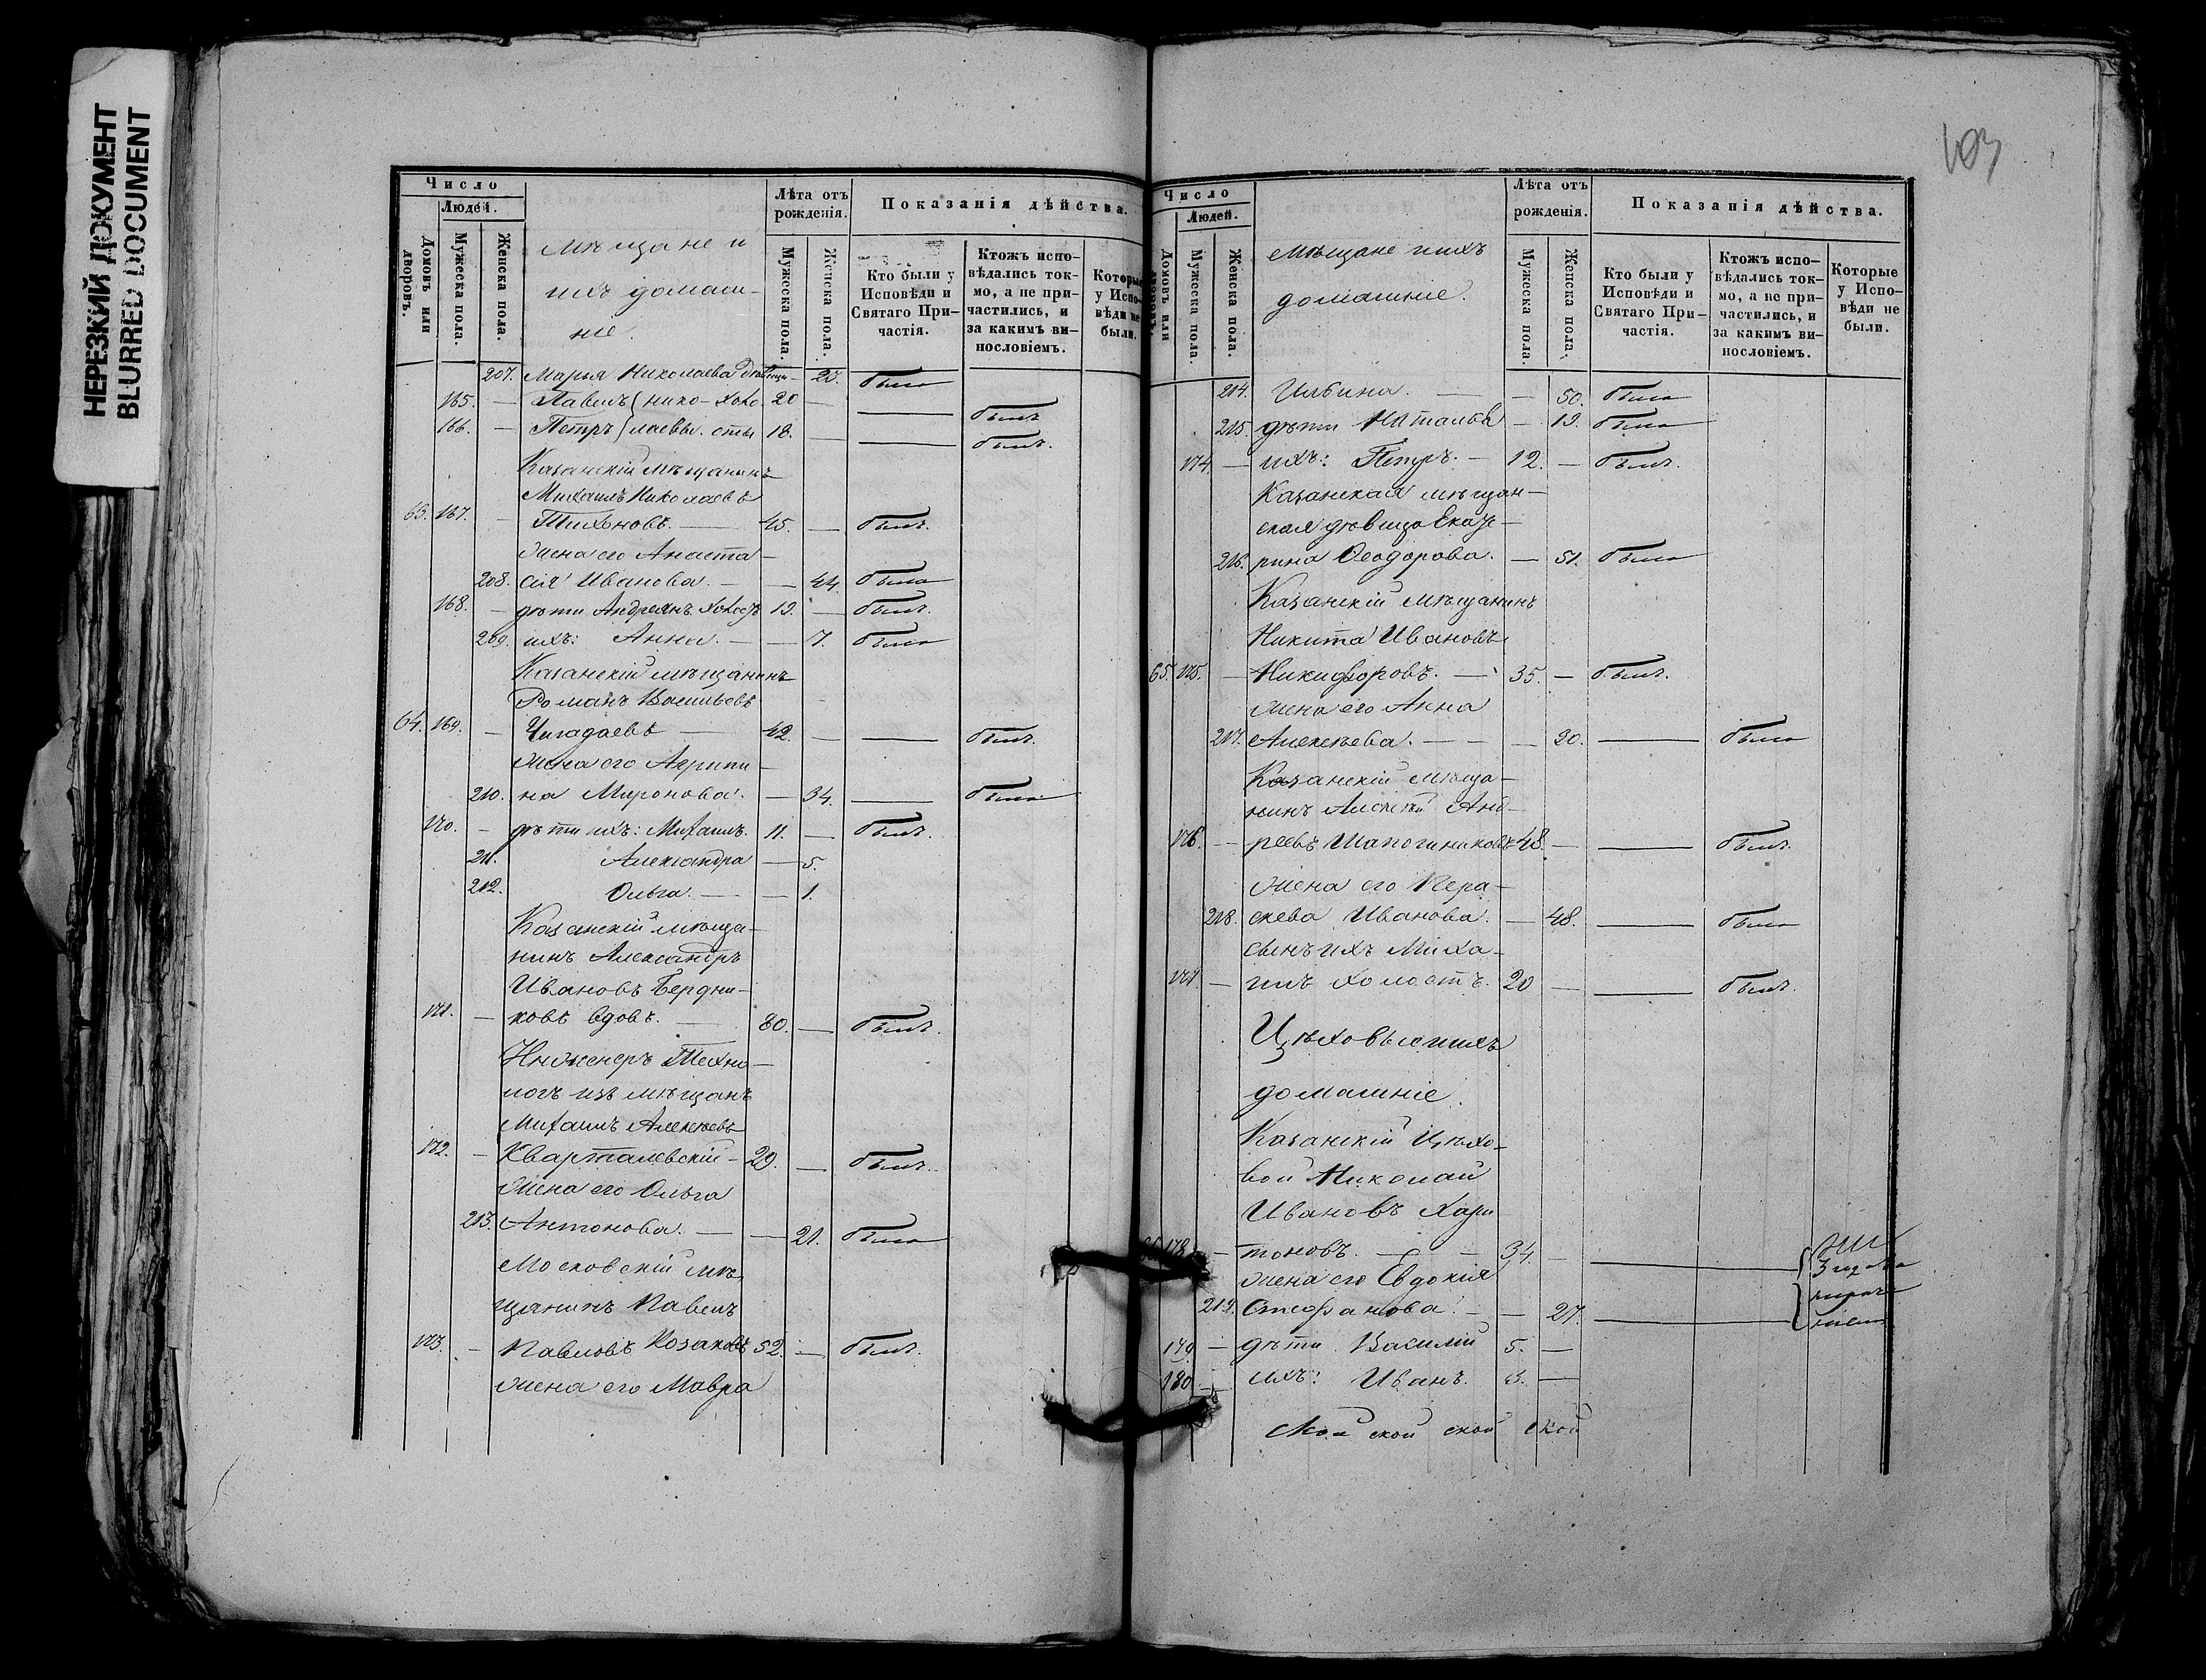 НЕРЕЗКИЙ ДОКУМЕНТ
BLURRED DOCUMENT
Число
Людей.
Домовъ или дворовъ.
Мужеска пола.
Женска пола.
Мѣщане и
ихъ домаш-
ніе.
Лѣта отъ рожденія.
Мужеска пола.
Женска пола.
Показанія дѣйства.
Кто были у Исповѣди и Святаго При-частія.
Ктожъ испо-вѣдались ток-мо, а не при-частились, и за какимъ ви-нословіемъ.
Которые у Испо-вѣди не были.
207. Марья Николаева дѣвица - 23. была
165. — Павелъ (Нико- холо. 20 — — былъ
166. — Петръ (лаевы. сты 18. — — былъ.
Казанскій мѣщанинъ
Михаилъ Николаевъ
63. 167. — Тихоновъ. — 45. — былъ.
Жена его Анаста-
208. сія Иванова. — — 44. была
168. — дѣти Андреянъ холостъ 19. — былъ.
209. ихъ: Анна. — — 7. была
Казанскій мѣщанинъ
Романъ Васильевъ
64. 169. — Чигадаевъ — 42. — — былъ.
Жена его Агрипи-
210. на Миронова. — 34. — была
170. — дѣти ихъ: Михаилъ. 11. — былъ.
211. Александра — 5.
212. Ольга. — — 1.
Казанскій мѣща-
нинъ Александръ
Ивановъ Бердни-
171. — ковъ вдовъ. — 80. — былъ.
Инженеръ Техно-
логъ изъ мѣщанъ
Михаилъ Алексѣевъ
172. — Кварталевскій - 29. — былъ.
Жена его Ольга
213. Антонова. — — 21. была
Московскій мѣ-
щанинъ Павелъ
173. — Павловъ Козаковъ 52. — былъ.
Жена его Мавра
103
Число
Людей.
Домовъ или дворовъ.
Мужеска пола.
Женска пола.
Мѣщане и ихъ
домашніе.
Лѣта отъ рожденія.
Мужеска пола.
Женска пола.
Показанія дѣйства.
Кто были у Исповѣди и Святаго При-частія.
Ктожъ испо-вѣдались ток-мо, а не при-частились, и за какимъ ви-нословіемъ.
Которые у Испо-вѣди не были.
214. Ильина. — — 50. была
215. дѣти Наталья — 19. была
174. — ихъ: Петръ. — 12. — былъ.
Казанская мѣщан-
ская дѣвица Екате-
216. рина Ѳеодорова. — 51. была
Казанскій мѣщанинъ
Никита Ивановъ
65. 175. — Никифоровъ. — 35. — былъ.
Жена его Анна
217. Алексѣева. — — — 20. — была
Казанскій мѣща-
нинъ Алексѣй Анд-
176. — реевъ Шапошниковъ 48. — — былъ.
Жена его Пера-
218. скева Иванова. — 48. — была
сынъ ихъ Миха-
177 — илъ холостъ. 20 — — былъ.
Цѣховые и ихъ
домашніе.
Казанскій Цѣхо-
вой Николай
Ивановъ Хари
178. — тоновъ. — — 34. —
3 года
Жена его Евдокія
219. Стефанова. — — 27. —
179 — дѣти Василій 5. —
180 — ихъ: Иванъ. 3. —
ской ской ской